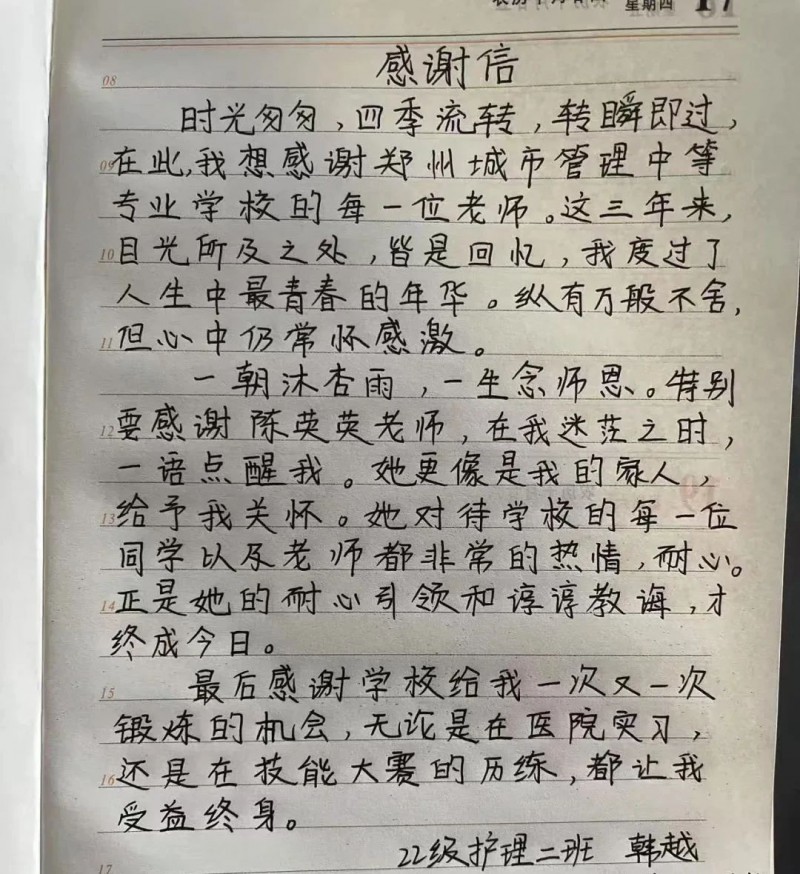 星期四
17
感谢信
08
时光匆匆，四季流转，转瞬即过，
09在此，我想感谢郑州城市管理中等
专业学校的每一位老师。这三年来，
10目光所及之处，皆是回忆，我度过了
人生中最青春的年华。纵有万般不舍，
11但心中仍常怀感激。
一朝沐杏雨，一生念师恩。特别
12要感谢陈英英老师，在我迷茫之时，
一语点醒我。她更像是我的家人，
13给予我关怀。她对待学校的每一位
同学以及老师都非常的热情，耐心。
14正是她的耐心引领和谆谆教诲，才
终成今日。
15最后感谢学校给我一次又一次
锻炼的机会，无论是在医院实习，
16还是在技能大赛的历练，都让我
受益终身。
22级护理二班 韩越
17